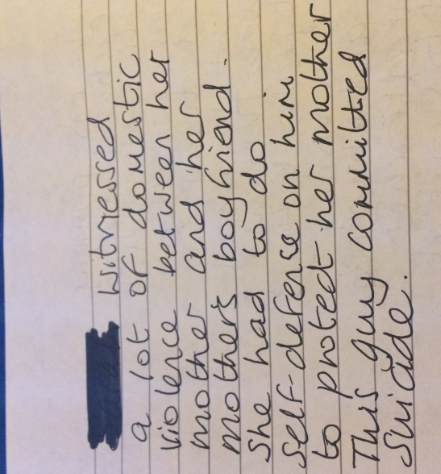 witnessed
a lot of domestic
violence between her
mother and her
mothers boyfriend.
She had to do
self-defense on him
to protect her mother
This guy committed
suicide.